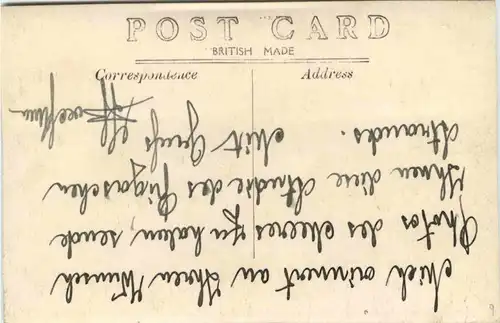 POST CARD
BRITISH MADE
Correspondence
Address
Mich erinnernt an Ihren Wunsch
Photos des Meeres zu haben, sende
Ihnen diese Studie des Rigaschen
Strandes.
Mit Gruß